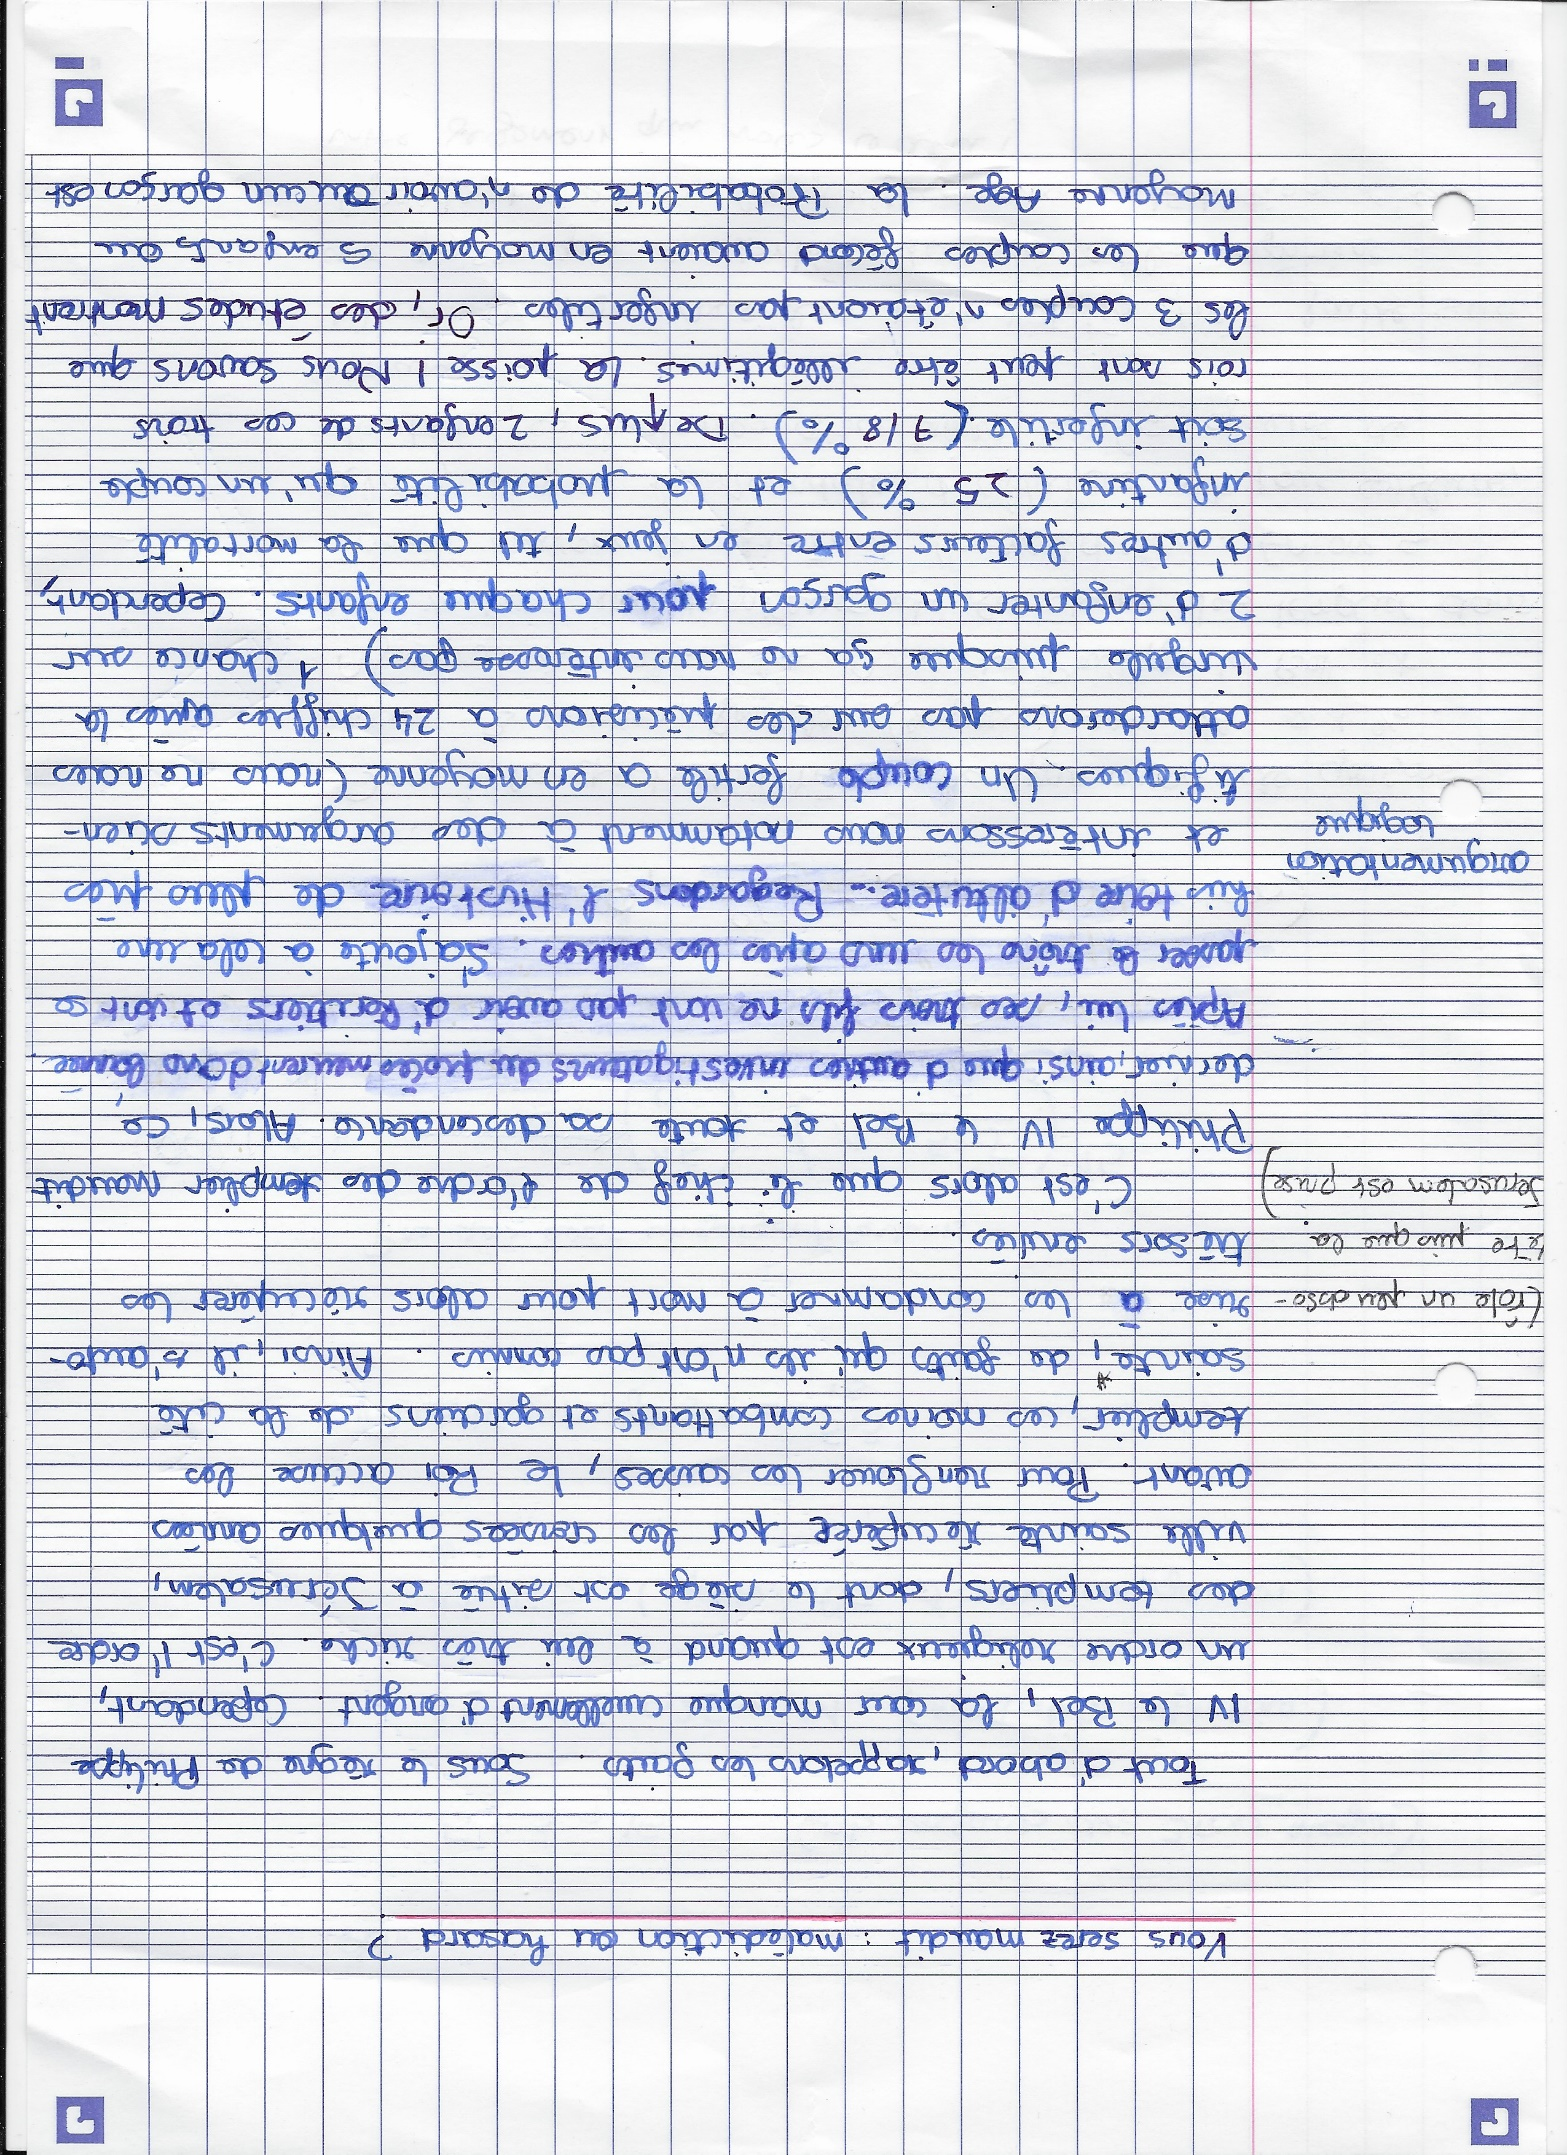 Vous serez maudit : malédiction ou hasard ?
Tout d'abord, rappelons les faits. Sous le règne de Philippe
IV le Bel, la cour manque cruellement d'argent. Cependant,
un ordre religieux est quand à lui très riche. C'est l'ordre
des templiers, dont le siège est situé à Jérusalem,
ville sainte récupérée par les croisées quelques années
avant. Pour renflouer les caisses, le Roi accuse les
templier, ces moines combattants et gardiens de la cité
sainte,* de faits qu'ils n'ont pas commis. Ainsi, il s'auto-
rise à les condamner à mort pour alors récupérer les
trésors enviés.
(rôle un peu obso-
lète puisque la
Jérusalem est prise)
C'est alors que le chef de l'ordre des templier maudit
Philippe IV le Bel et toute sa descendance. Alors, ce
dernier, ainsi que d'autres investigateurs du procès meurent dans l'année.
Après lui, ses trois fils ne vont pas avoir d'héritiers et vont se
passer le trône les uns après les autres. S'ajoute à cela une
histoire d'adultère... Regardons l'Histoire de plus près
et intéressons nous notamment à des arguments scien-
tifiques. Un couple fertile a en moyenne (nous ne nous
attarderons pas sur des précisions à 24 chiffres après la
virgule puisque ça ne nous intéresse pas) 1 chance sur
2 d'enfanter un garçon pour chaque enfants. Cependant,
d'autres facteurs entre en jeux, tel que la mortalité
infantine (25 %) et la probabilité qu'un couple
soit infertile (7/8 %). De plus, 2 enfants de ces trois
rois sont peut être illégitimes. La poisse ! Nous savons que
les 3 couples n'étaient pas infertiles. Or, des études montrent
que les couples fécond avaient en moyenne 5 enfants au
Moyenne Age. La Probabilité de n'avoir aucun garçon est
argumentation
logique